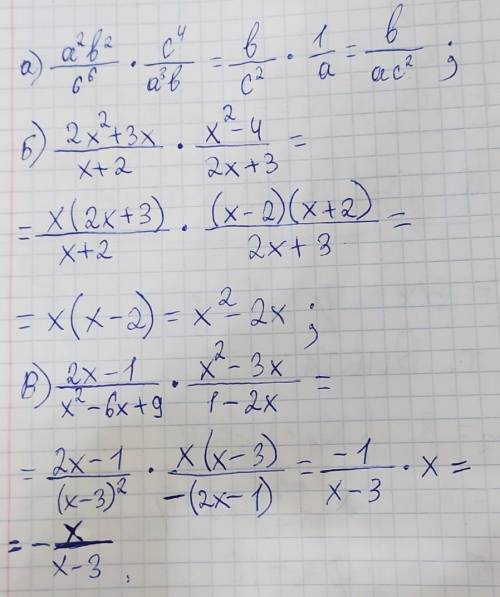 а) a²b²/c⁶ · c⁴/a³b = b/c² · 1/a = b/ac² ;
б) 2x²+3x/x+2 · x²-4/2x+3 =
= x(2x+3)/x+2 · (x-2)(x+2)/2x+3 =
= x(x-2) = x²-2x ;
в) 2x-1/x²-6x+9 · x²-3x/1-2x =
= 2x-1/(x-3)² · x(x-3)/-(2x-1) = -1/x-3 · x =
= - x/x-3 .